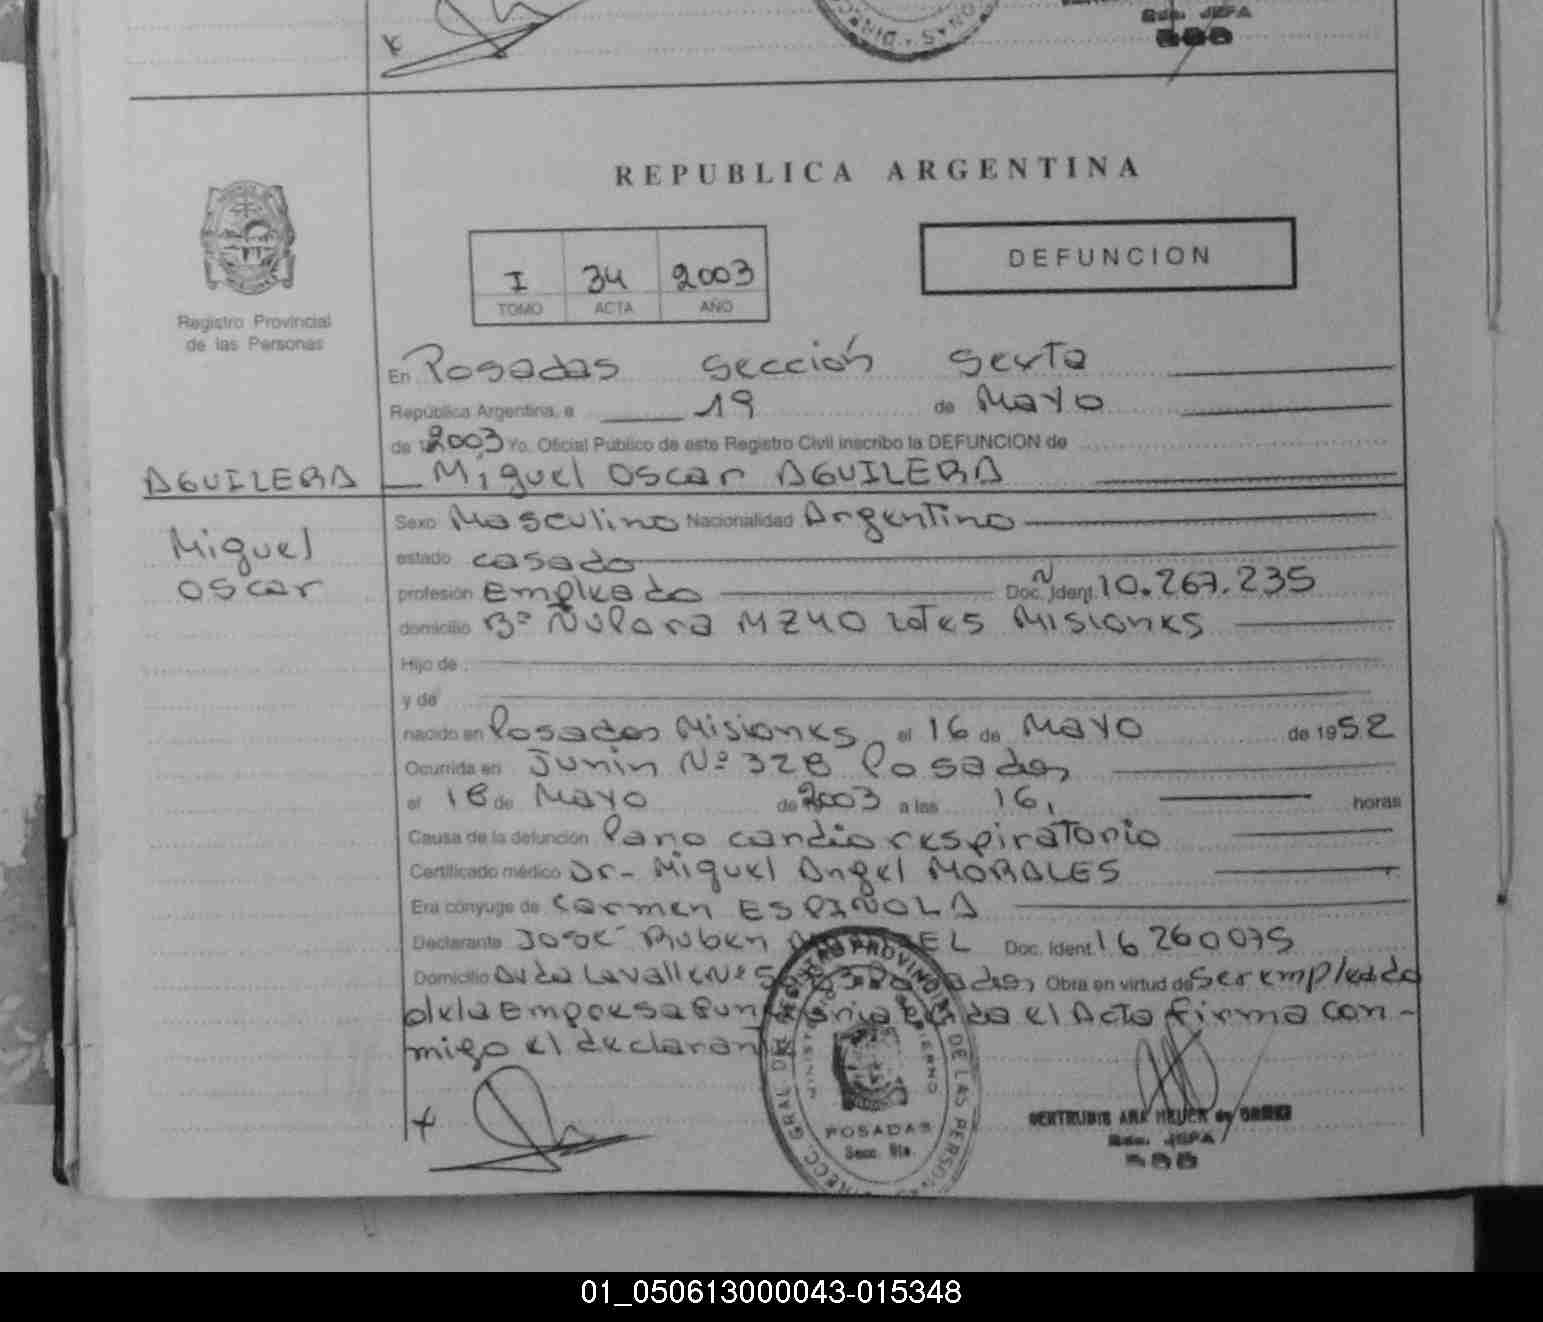 Bdo. JEFA
REPUBLICA ARGENTINA
I 34 2003
TOMO ACTA AÑO
DEFUNCION
Registro Provincial
de las Personas
En Posadas Sección Sexta
República Argentina, a 19 de Mayo
de 2003 Yo. Oficial Público de este Registro Civil inscribo la DEFUNCION de
AGUILERA Miguel Oscar AGUILERA
Miguel
Oscar
Sexo Masculino Nacionalidad Argentino
estado casado
profesión Empleado Doc. Ident. 10.267.235
domicilio Bº MZ 40 Misiones
Hijo de
y de
nacido en Posadas Misiones el 16 de Mayo de 1952
Ocurrida en Junin Nº 328 Posadas
el 18 de Mayo de 2003 a las 16, horas
Causa de la defunción Paro cardio respiratorio
Certificado médico Dr- Miguel Angel MORALES
Era cónyuge de Carmen ESPAÑOLA
Declarante José Ruben Doc. Ident. 16260075
Domicilio Avda Lavalle Nº Posadas Obra en virtud de Ser empleado
de la Empresa Funeraria el Acta firma con-
migo el declarante
POSADAS
Secc. 6ta.
GERTRUDIS ANA
JEFA
01_050613000043-015348